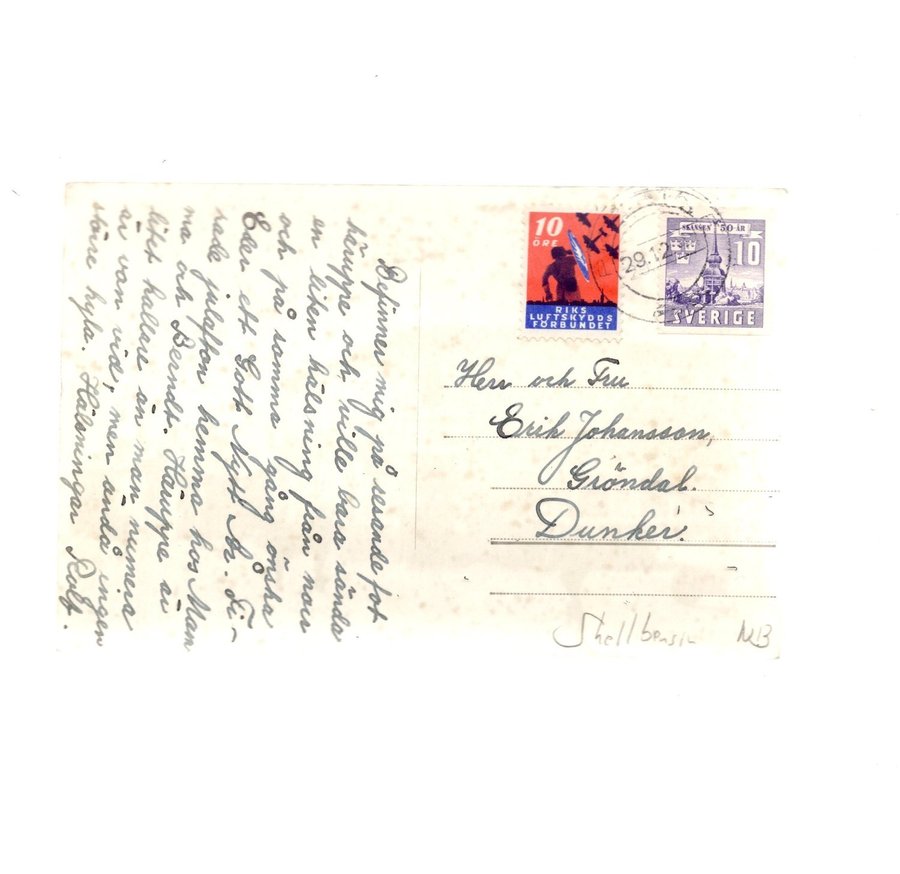 Befinner mig på resande fot
häruppe och ville bara sända
en liten hälsning från norr
och på samma gång önska
Eder ett Gott Nytt År. Fi-
rade julafton hemma hos Mam
ma och Berndt. Häruppe är
litet kallare än man numera
är van vid, men ändå ingen
större kyla. Hälsningar Rolf.
10
ÖRE
RIKS
LUFTSKYDDS
FÖRBUNDET
29.12
SKANSEN 50 ÅR
10
SVERIGE
Herr och Fru
Erik Johansson,
Gröndal.
Dunker.
Shellbensin NB